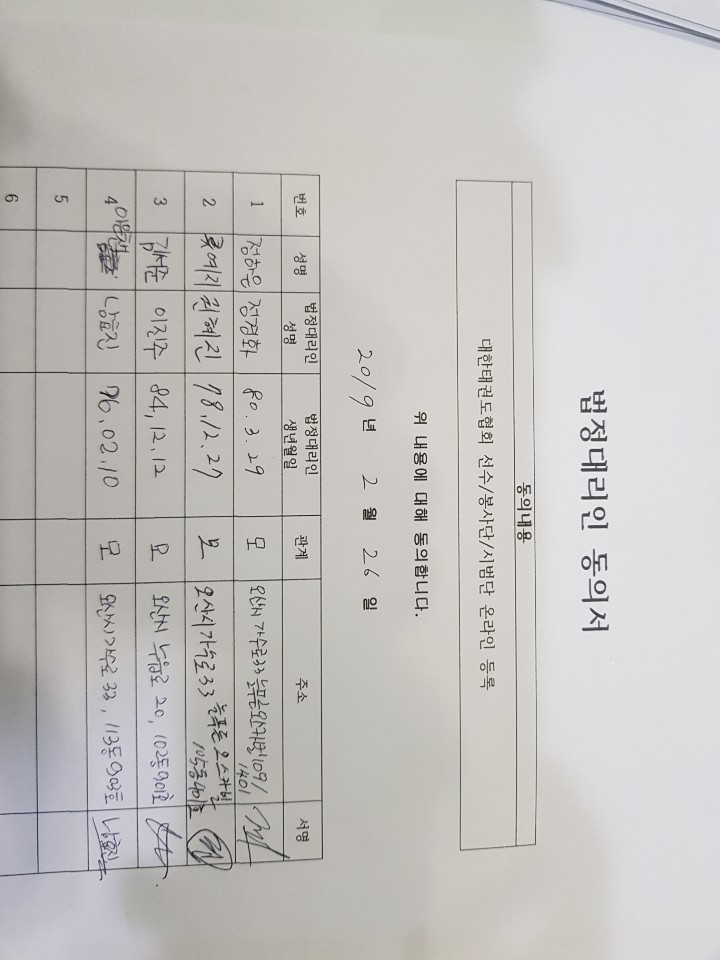 법정대리인 동의서
동의내용
대한태권도협회 선수/봉사단/시범단 온라인 등록
위 내용에 대해 동의합니다.
2019 년 2 월 26 일
번호 성명 법정대리인 성명 법정대리인 생년월일 관계 주소 서명
1 정하은 정경화 80.3.29 모 오산시 가수로33 늘푸른오스카빌 109/1401
2 예지 권혜진 78.12.27 모 오산시 가수로33 늘푸른오스카빌 105동401호
3 김서준 이진주 84.12.12 모 오산시 20, 102동901호
4 남효진 76.02.10 모 오산시 가수로 33, 113동908호 남효진
5
6